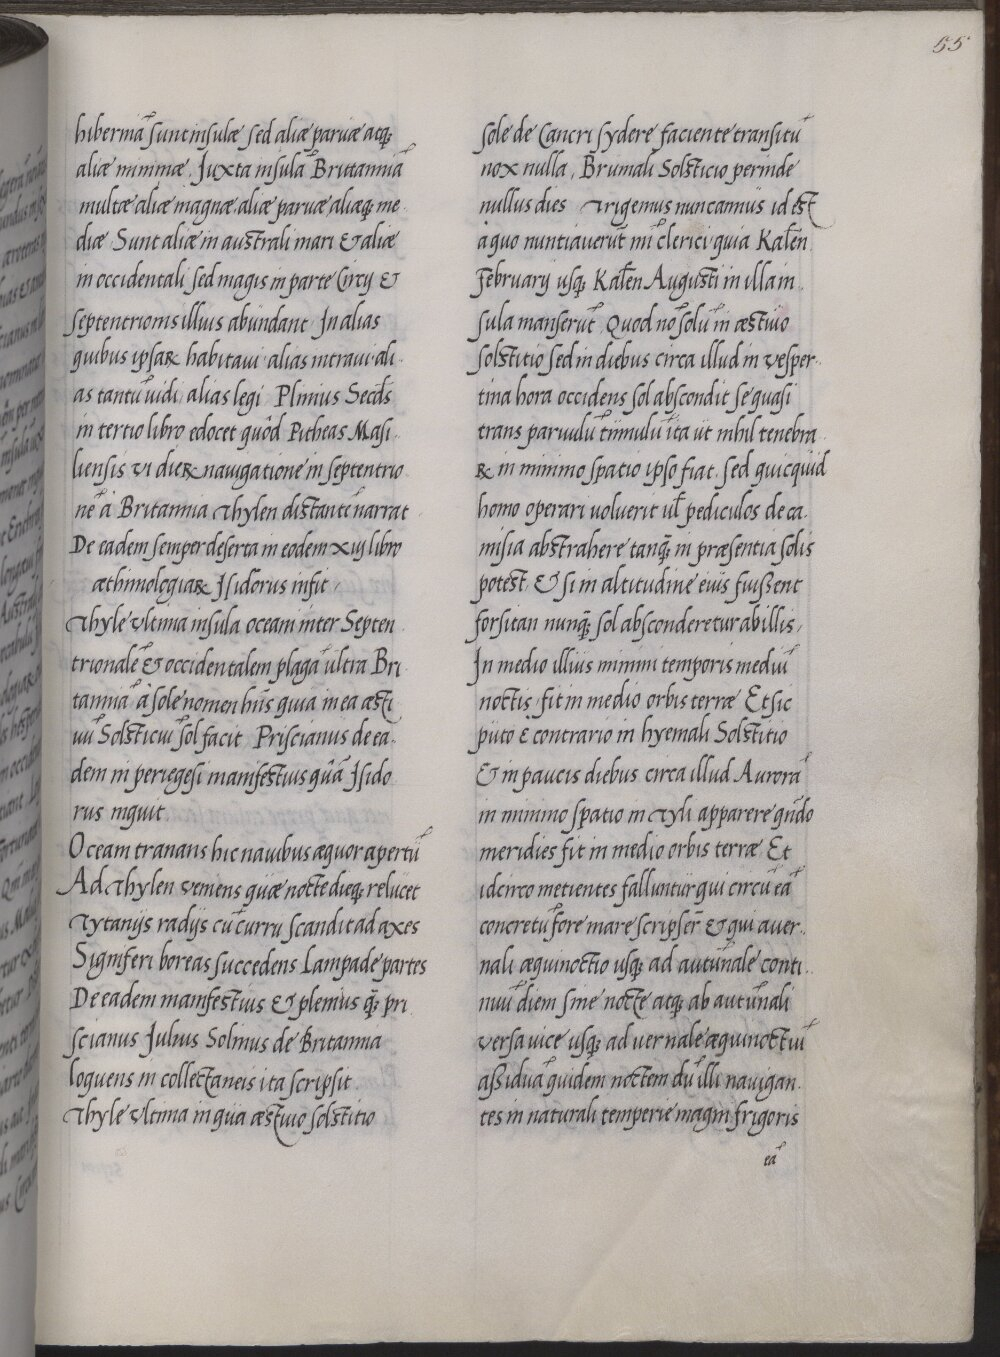 55
hiberniā sunt insulæ sed aliæ paruæ atq;
aliæ minimæ. Juxta insulā Britanniā
multæ aliæ magnæ aliæ paruæ aliæq; me
diæ Sunt aliæ in australi mari & aliæ
in occidentali sed magis in parte Circij &
septentrionis illius abundant. In alias
quibus ipsaꝝ habitaui alias intraui ali
as tantū uidi alias legi Plinius Secd's
in tertio libro edocet quôd Pitheas Masi
liensis vi dieꝝ nauigatione in septentrio
nē à Britannia Thylen distantē narrat
De eadem semper deserta in eodem xiiij libro
æthimologiaꝝ Isidorus infit
Thyle vltima insula oceani inter Septen
trionalē & occidentalem plagā ultra Bri
tanniā à sole nomen hn̄s quia in ea æsti
uū Solsticiū sol facit Priscianus de ea
dem in periegesi manifestius quā Isido
rus inquit
Oceani tranans hic nauibus æquor apertū
Ad Thylen veniens quæ nocte dieq; relucet
Tytanijs radijs cū curru scandit ad axes
Signiferi boreas succedens Lampade partes
De eadem manifestius & plenius q̄; pri
scianus Julius Solinus de Britannia
loquens in collectaneis ita scripsit
Thyle vltima in qua æstiuo solstitio
sole de Cancri sydere faciente transitū
nox nulla, Brumali Solsticio perinde
nullus dies Trigemus nunc annus id est
à quo nuntiauerūt mī clerici quia Kalen
February usq; Kalen Augusti in illa in
sula manserūt Quod nō solū in æstiuo
solstitio sed in diebus circa illud in vesper
tina hora occidens sol abscondit se quasi
trans paruulū tumulū ita ut nihil tenebra
ꝝ in minimo spatio ipso fiat sed quicquid
homo operari uoluerit ul̄ pediculos de ca
misia abstrahere tanq̄; in præsentia solis
potest & si in altitudine eius fuißent
forsitan nunq̄; sol absconderetur ab illis,
In medio illius minimi temporis mediū
noctis fit in medio orbis terræ Et sic
puto è contrario in hyemali Solstitio
& in paucis diebus circa illud Aurorā
in minimo spatio in Tyli apparere qn̄do
meridies fit in medio orbis terræ Et
idcirco metientes falluntur qui circū eā
concretū fore mare scripser̄ & qui a uer
nali æquinoctio usq; ad autūnale conti
nuū diem sine nocte atq; ab autūnali
versa uice usq; ad uernale æquinoctiū
aßiduā quidem noctem dū illi nauigan
tes in naturali temperie magni frigoris
eā